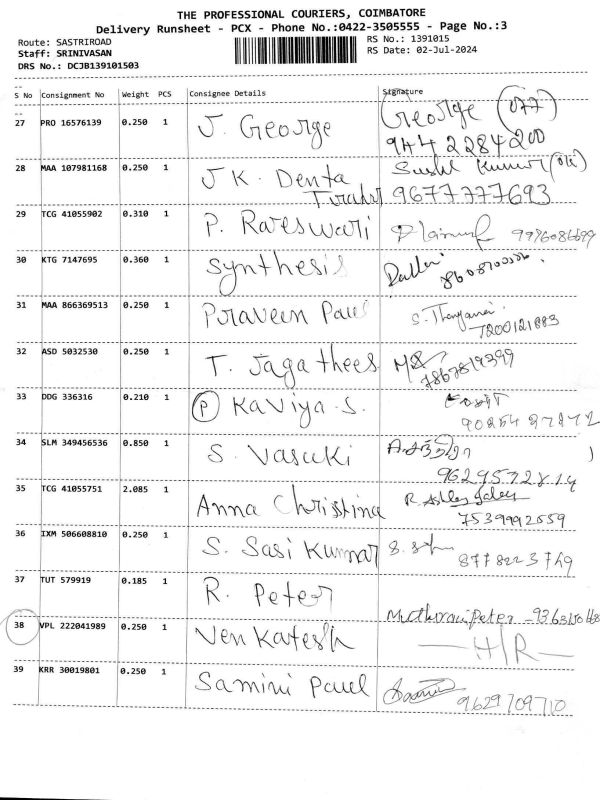 THE PROFESSIONAL COURIERS, COIMBATORE
Delivery Runsheet - PCX - Phone No.:0422-3505555 - Page No.:3
Route: SASTRIROAD RS No.: 1391015
Staff: SRINIVASAN RS Date: 02-Jul-2024
DRS No.: DCJB139101503
S No Consignment No Weight PCS Consignee Details Signature
27 PRO 16576139 0.250 1 J. George George (077)
9442284200
28 MAA 107981168 0.250 1 JK. Denta Sushil Kumar
Traders 9677777693
29 TCG 41055902 0.310 1 P. Rareswari
30 KTG 7147695 0.360 1 Synthesis
31 MAA 866369513 0.250 1 Praveen Paul
7200121883
32 ASD 5032530 0.250 1 T. Jagathees
7867819399
33 DDG 336316 0.210 1 (P) Kaviya. S.
34 SLM 349456536 0.850 1 S. Vasuki
35 TCG 41055751 2.085 1 Anna Christina
7539992559
36 IXM 506608810 0.250 1 S. Sasi Kumar
37 TUT 579919 0.185 1 R. Peter
38 VPL 222041989 0.250 1 Venkatesh — H/R —
39 KRR 30019801 0.250 1 Samini Paul
9629709710